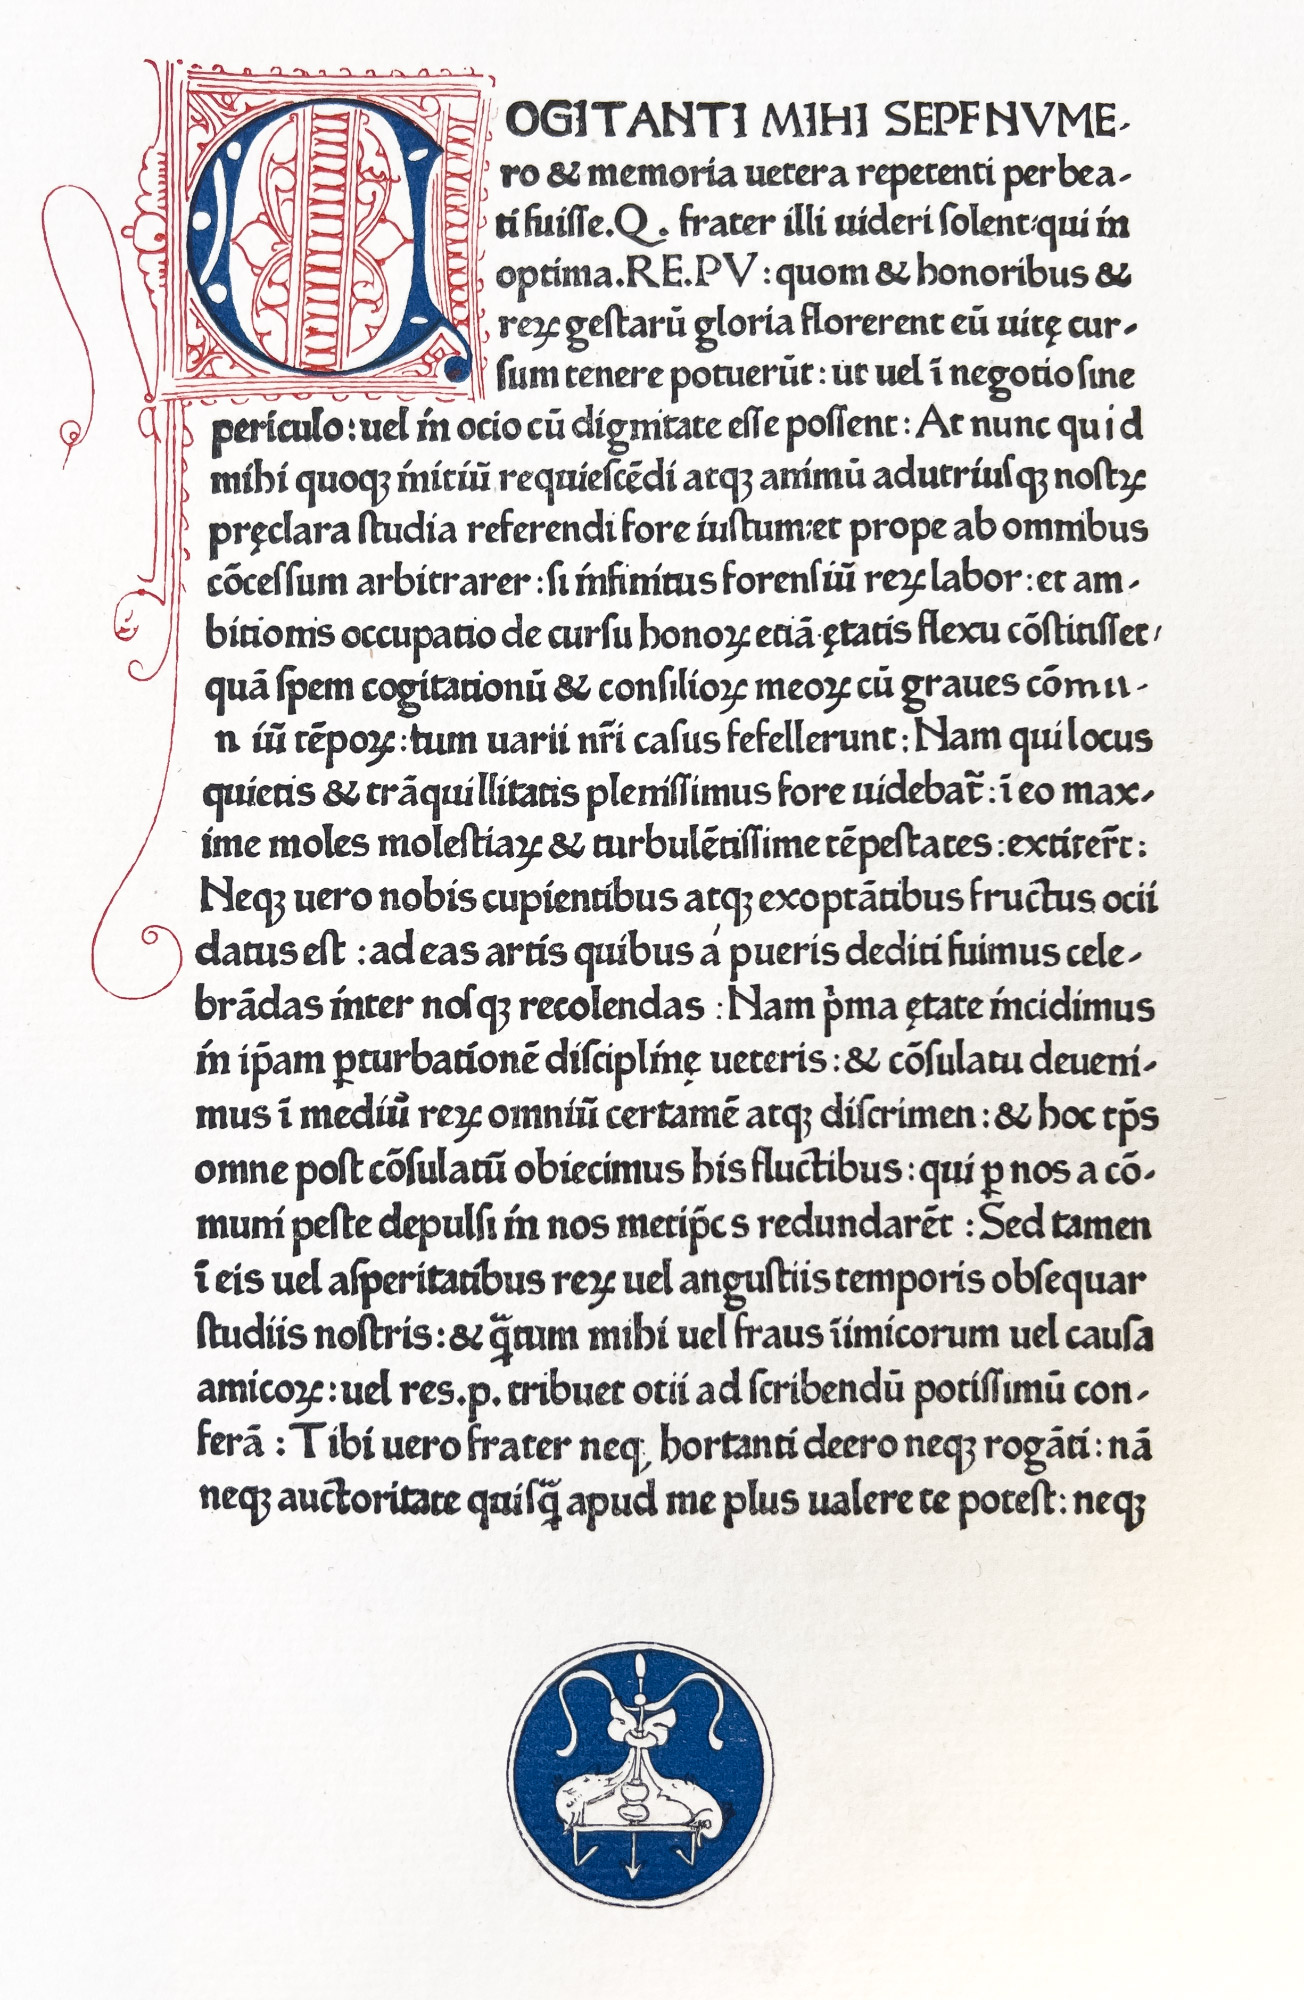 COGITANTI MIHI SEPENVME-
ro & memoria uetera repetenti perbea-
ti fuisse. Q. frater illi uideri solent: qui in
optima. RE. PV: quom & honoribus &
reꝝ gestarū gloria florerent eū uitę cur-
sum tenere potuerūt: ut uel ī negotio sine
periculo: uel in ocio cū dignitate esse possent: At nunc quid
mihi quoqꝫ initiū requiescēdi atqꝫ animū adutriusqꝫ nostꝝ
pręclara studia referendi fore iustum: et prope ab omnibus
cōcessum arbitrarer: si infinitus forensiū reꝝ labor: et am-
bitionis occupatio de cursu honoꝝ etiā ętatis flexu cōstitisset,
quā spem cogitationū & consilioꝝ meoꝝ cū graues cōmu-
niū tēpoꝝ: tum uarii nr̄i casus fefellerunt: Nam qui locus
quietis & trāquillitatis plenissimus fore uidebat᷑: ī eo max-
ime moles molestiaꝝ & turbulētissime tēpestates: extiter̄t:
Neqꝫ uero nobis cupientibus atqꝫ exoptātibus fructus ocii
datus est: ad eas artis quibus á pueris dediti fuimus cele-
brādas inter nosqꝫ recolendas: Nam pͥma ętate incidimus
in ip̄am ꝑturbationē disciplinę ueteris: & cōsulatu deueni-
mus ī mediū reꝝ omniū certamē atqꝫ discrimen: & hoc tp̄s
omne post cōsulatū obiecimus his fluctibus: qui ꝑ nos a cō-
muni peste depulsi in nos metip̄os redundarēt: Sed tamen
ī eis uel asperitatibus reꝝ uel angustiis temporis obsequar
studiis nostris: & qᷓtum mihi uel fraus īimicorum uel causa
amicoꝝ: uel res. p. tribuet otii ad scribendū potissimū con-
ferā: Tibi uero frater neqꝫ hortanti deero neqꝫ rogāti: nā
neqꝫ auctoritate quisqᷓ apud me plus ualere te potest: neqꝫ